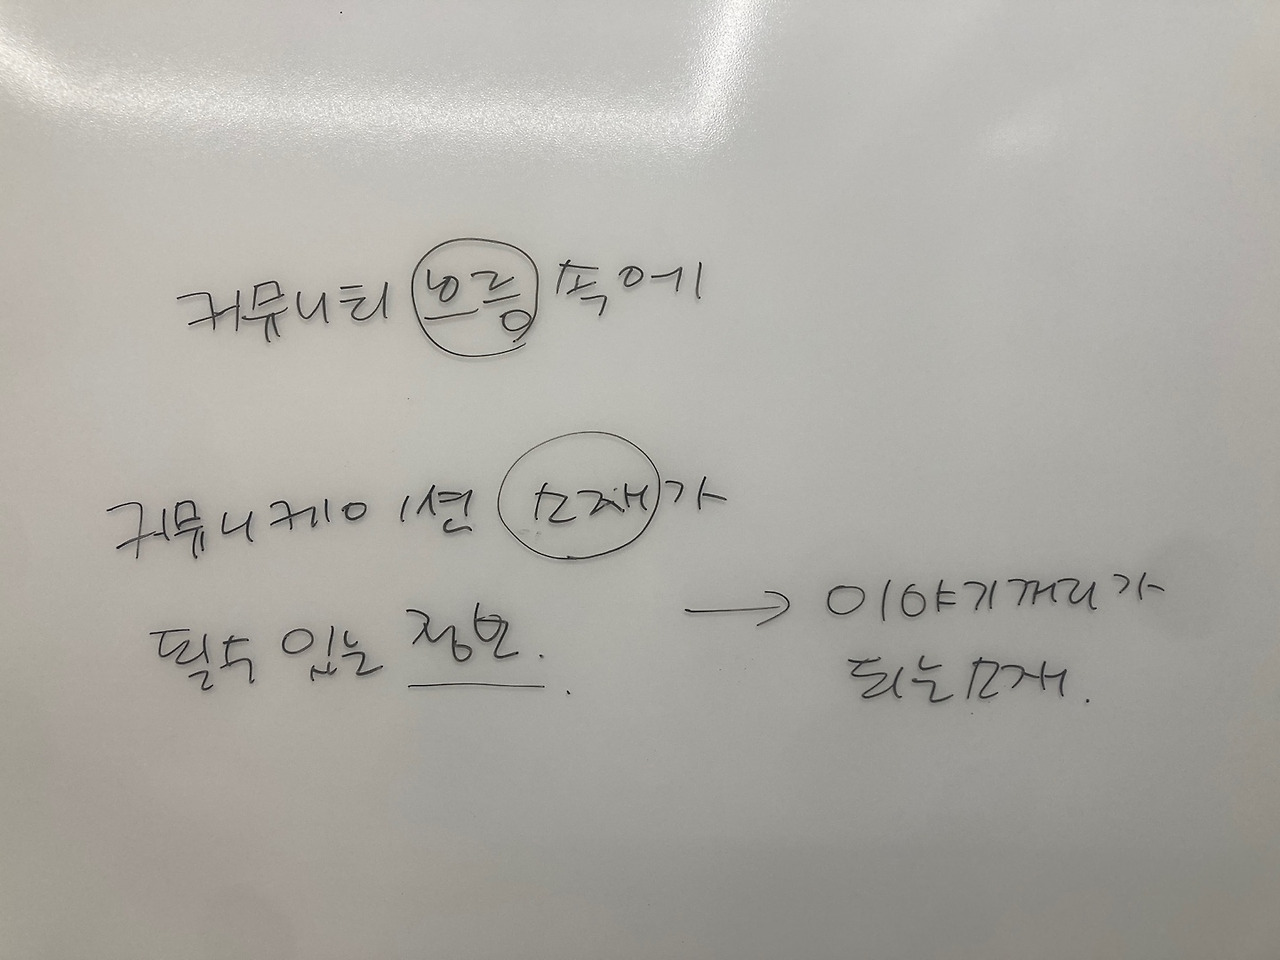 커뮤니티 흐름 속에
커뮤니케이션 소재가
될 수 있는 정보.
→ 이야기꺼리가
되는 소재.